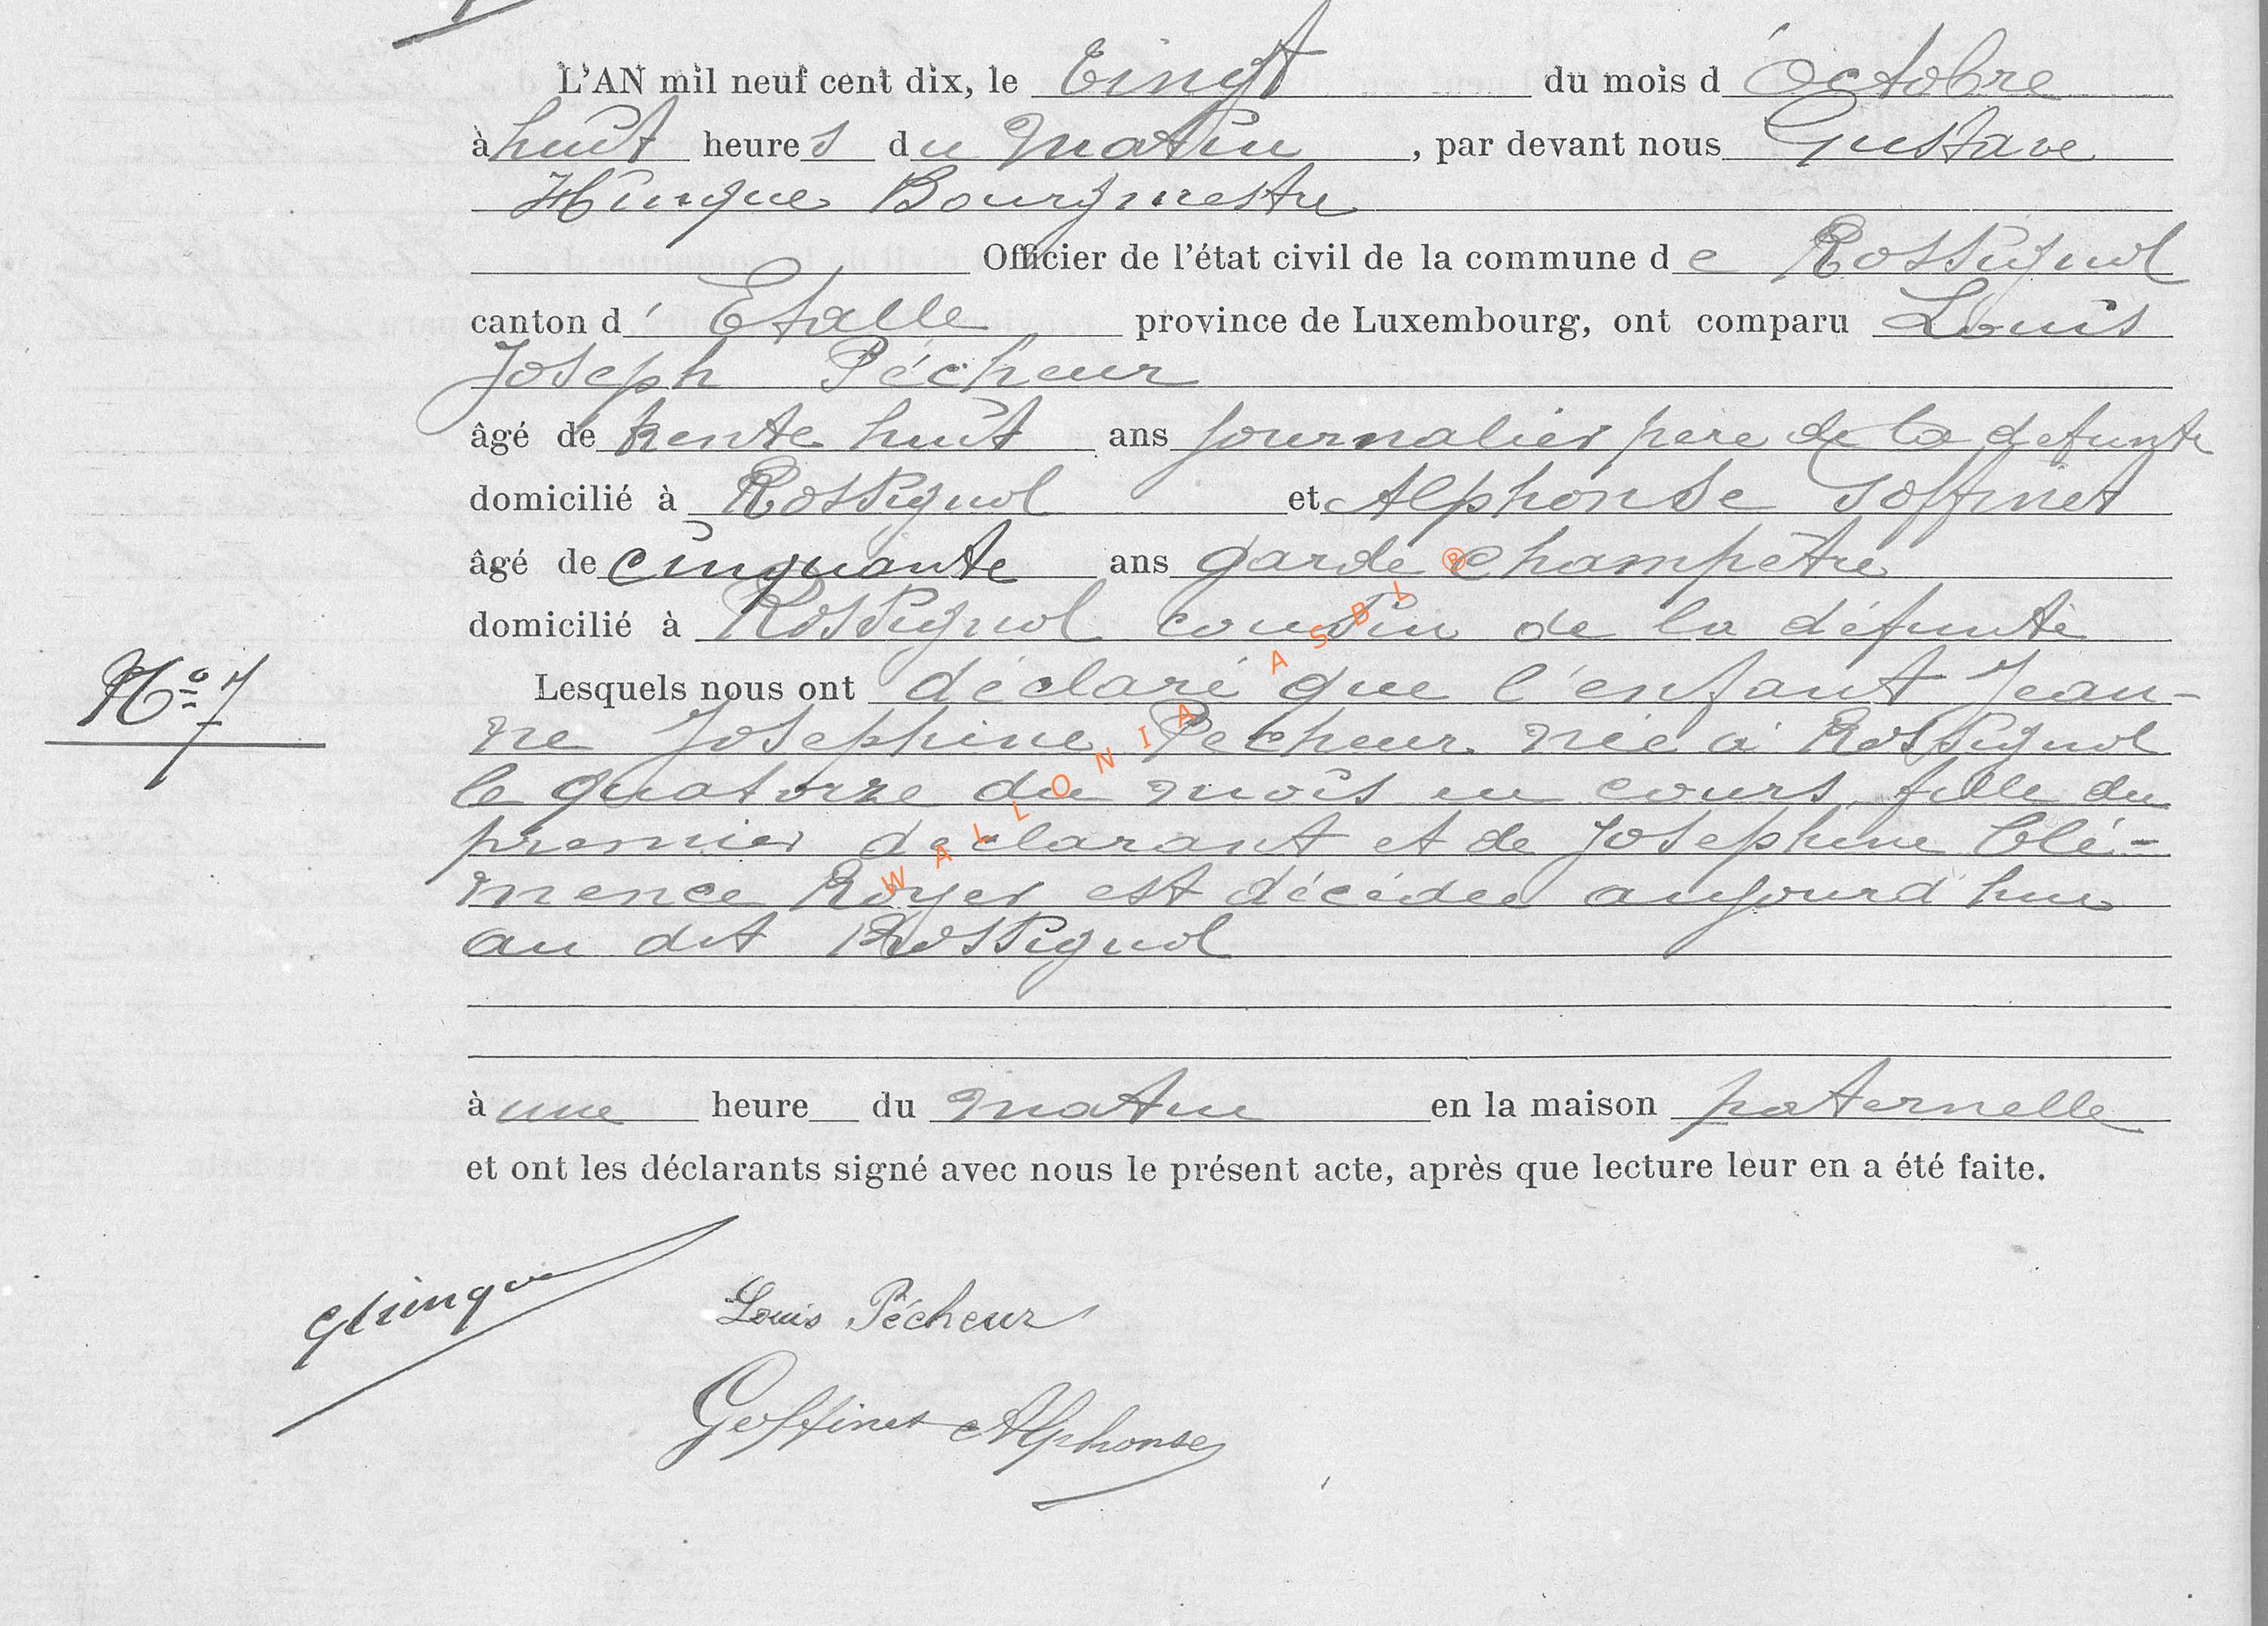 L'AN mil neuf cent dix, le Vingt du mois d'Octobre
à huit heures du Matin, par devant nous Gustave
Hinque Bourgmestre
Officier de l'état civil de la commune de Rossignol
canton d'Etalle province de Luxembourg, ont comparu Louis
Joseph Pécheur
âgé de trente huit ans journalier père de la defunte
domicilié à Rossignol et Alphonse Goffinet
âgé de cinquante ans garde champêtre
domicilié à Rossignol cousin de la défunte
No 7
Lesquels nous ont déclaré que l'enfant Jean-
ne Josephine Pécheur née à Rossignol
le quatorze du mois en cours, fille du
premier declarant et de Josephine Clé-
mence Royer est décédée aujourd'hui
au dit Rossignol
à une heure du matin en la maison paternelle
et ont les déclarants signé avec nous le présent acte, après que lecture leur en a été faite.
GHinque
Louis Pécheur
Goffinet Alphonse
WALLONIA ASBL ®